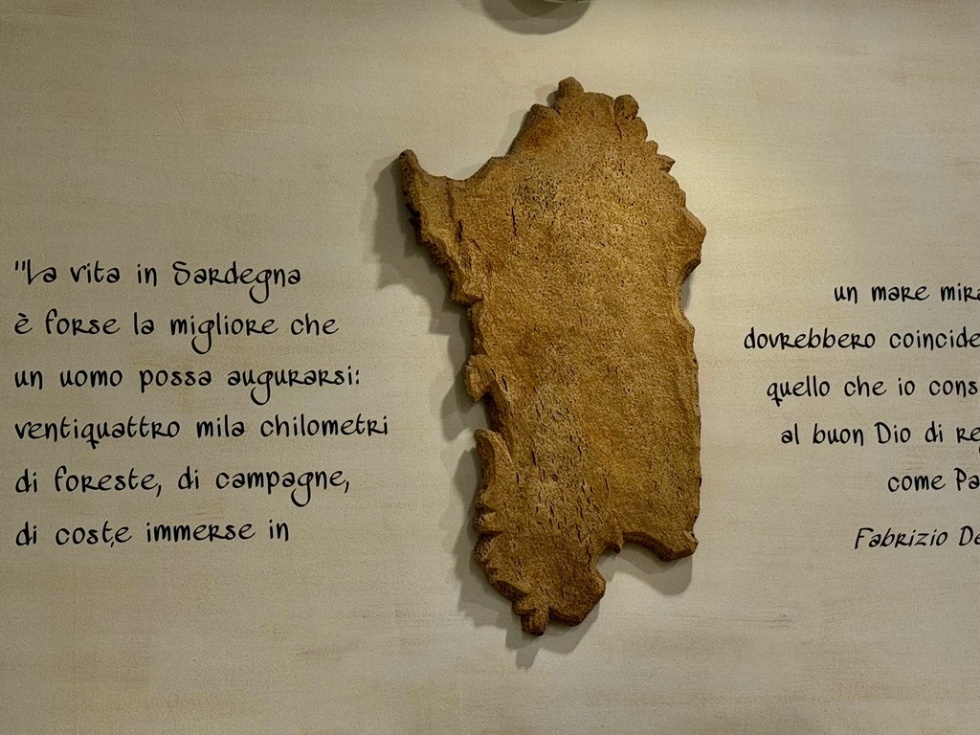 "La vita in Sardegna
è forse la migliore che
un uomo possa augurarsi:
ventiquattro mila chilometri
di foreste, di campagne,
di coste immerse in
un mare
dovrebbero
quello che io
al buon Dio di
come
Fabrizio